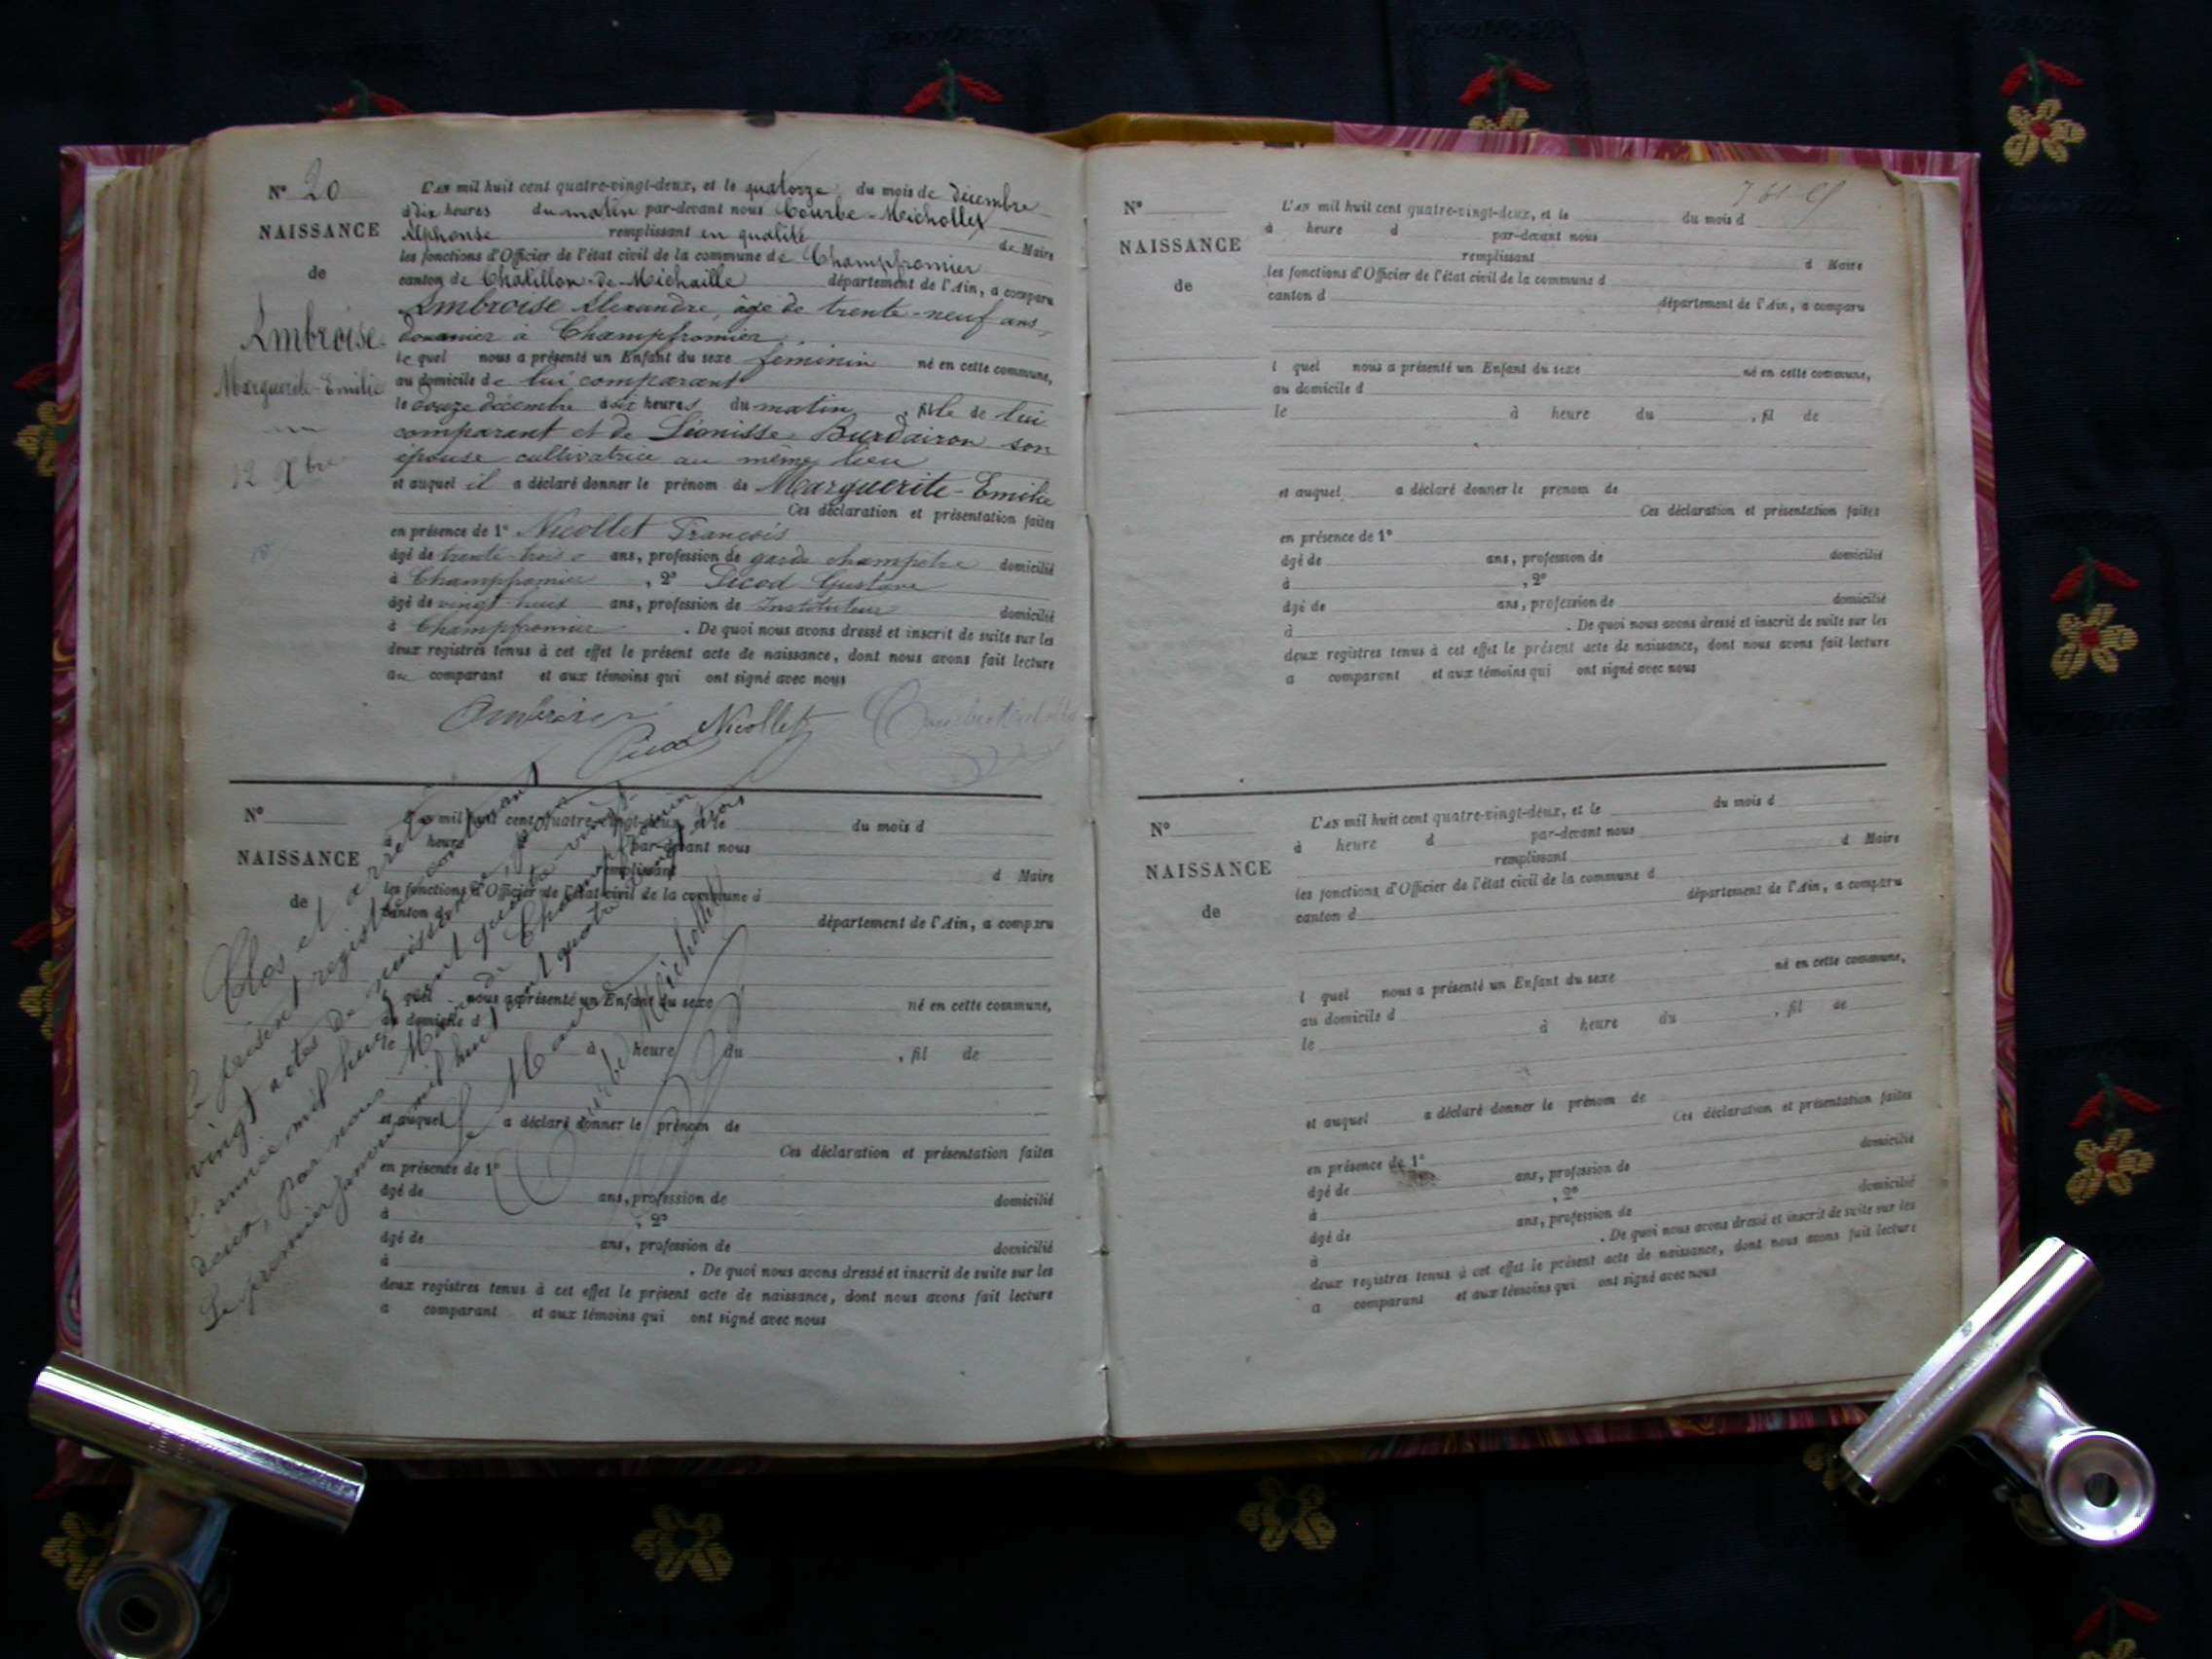 N° 20
NAISSANCE
de
Ambroise
Marguerite-Emilie
12 Xbre
L'AN mil huit cent quatre-vingt-deux, et le quatorze du mois de décembre
à dix heures du matin par-devant nous Courbe-Michollet
Alphonse remplissant en qualité de Maire
les fonctions d'Officier de l'état civil de la commune de Champfromier
canton de Chatillon-de-Michaille département de l'Ain, a comparu
Ambroise Alexandre, âgé de trente-neuf ans,
douanier à Champfromier,
lequel nous a présenté un Enfant du sexe feminin né en cette commune,
au domicile de lui comparant
le douze décembre à six heures du matin, fille de lui
comparant et de Léonisse Burdairon son
épouse cultivatrice au même lieu
et auquel il a déclaré donner le prénom de Marguerite-Emilie
Ces déclaration et présentation faites
en présence de 1° Nicollet François
âgé de trente-trois ans, profession de garde champetre domicilié
à Champfromier, 2° Gustave
âgé de vingt huit ans, profession de Instituteur domicilié
à Champfromier. De quoi nous avons dressé et inscrit de suite sur les
deux registres tenus à cet effet le présent acte de naissance, dont nous avons fait lecture
au comparant et aux témoins qui ont signé avec nous
Ambroise Nicollet
N°
NAISSANCE
de
L'AN mil huit cent quatre-vingt-deux, et le du mois d
à heure d par-devant nous
remplissant d Maire
les fonctions d'Officier de l'état civil de la commune d
canton d département de l'Ain, a comparu
l quel nous a présenté un Enfant du sexe né en cette commune,
au domicile d
le à heure du , fil de
et auquel a déclaré donner le prénom de
Ces déclaration et présentation faites
en présence de 1°
âgé de ans, profession de domicilié
à , 2°
âgé de ans, profession de domicilié
à . De quoi nous avons dressé et inscrit de suite sur les
deux registres tenus à cet effet le présent acte de naissance, dont nous avons fait lecture
a comparant et aux témoins qui ont signé avec nous
Clos et arrêté
le présent registre contenant
vingt actes de naissance, pour
l'année mil huit cent quatre-vingt-
deux, par nous Maire de Champfromier
le premier janvier mil huit cent quatre vingt trois
Le Maire
Courbe Michollet
N°
NAISSANCE
de
L'AN mil huit cent quatre-vingt-deux, et le du mois d
à heure d par-devant nous
remplissant d Maire
les fonctions d'Officier de l'état civil de la commune d
canton d département de l'Ain, a comparu
l quel nous a présenté un Enfant du sexe né en cette commune,
au domicile d
le à heure du , fil de
et auquel a déclaré donner le prenom de
Ces déclaration et présentation faites
en présence de 1°
âgé de ans, profession de domicilié
à , 2°
âgé de ans, profession de domicilié
à . De quoi nous avons dressé et inscrit de suite sur les
deux registres tenus à cet effet le présent acte de naissance, dont nous avons fait lecture
a comparant et aux témoins qui ont signé avec nous
N°
NAISSANCE
de
L'AN mil huit cent quatre-vingt-deux, et le du mois d
à heure d par-devant nous
remplissant d Maire
les fonctions d'Officier de l'état civil de la commune d
canton d département de l'Ain, a comparu
l quel nous a présenté un Enfant du sexe né en cette commune,
au domicile d
le à heure du , fil de
et auquel a déclaré donner le prénom de
Ces déclaration et présentation faites
en présence de 1°
âgé de ans, profession de domicilié
à , 2°
âgé de ans, profession de domicilié
à . De quoi nous avons dressé et inscrit de suite sur les
deux registres tenus à cet effet le présent acte de naissance, dont nous avons fait lecture
a comparant et aux témoins qui ont signé avec nous